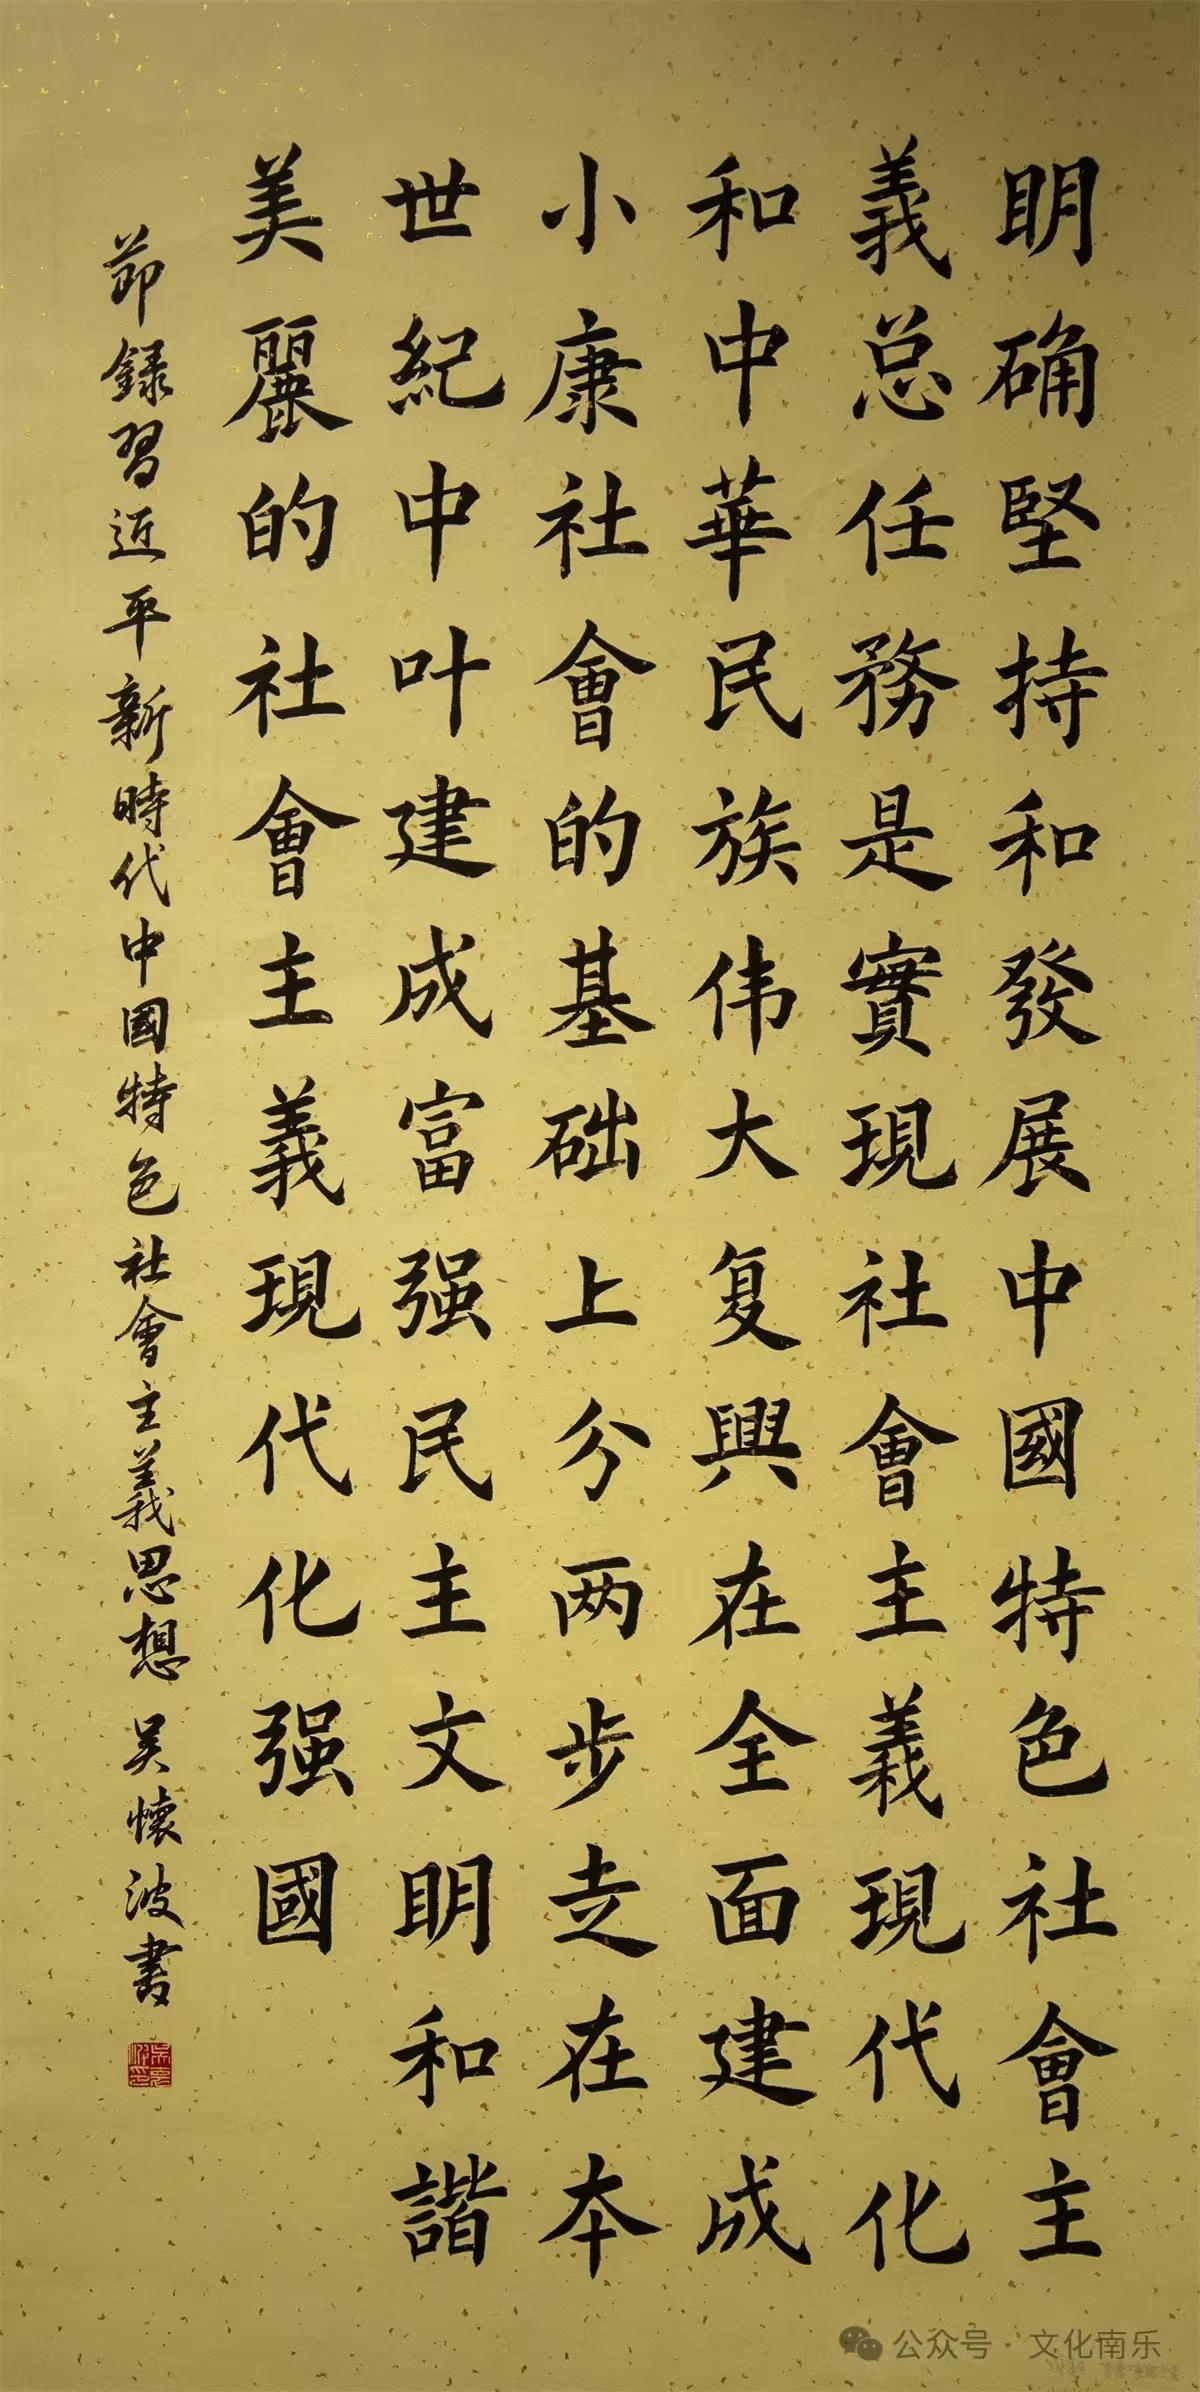 明确堅持和發展中國特色社會主
義总任務是實現社會主義現代化
和中華民族伟大复興在全面建成
小康社會的基础上分两步走在本
世紀中叶建成富强民主文明和諧
美麗的社會主義現代化强國
節録習近平新時代中國特色社會主義思想 吴懷波書
公众号·文化南乐